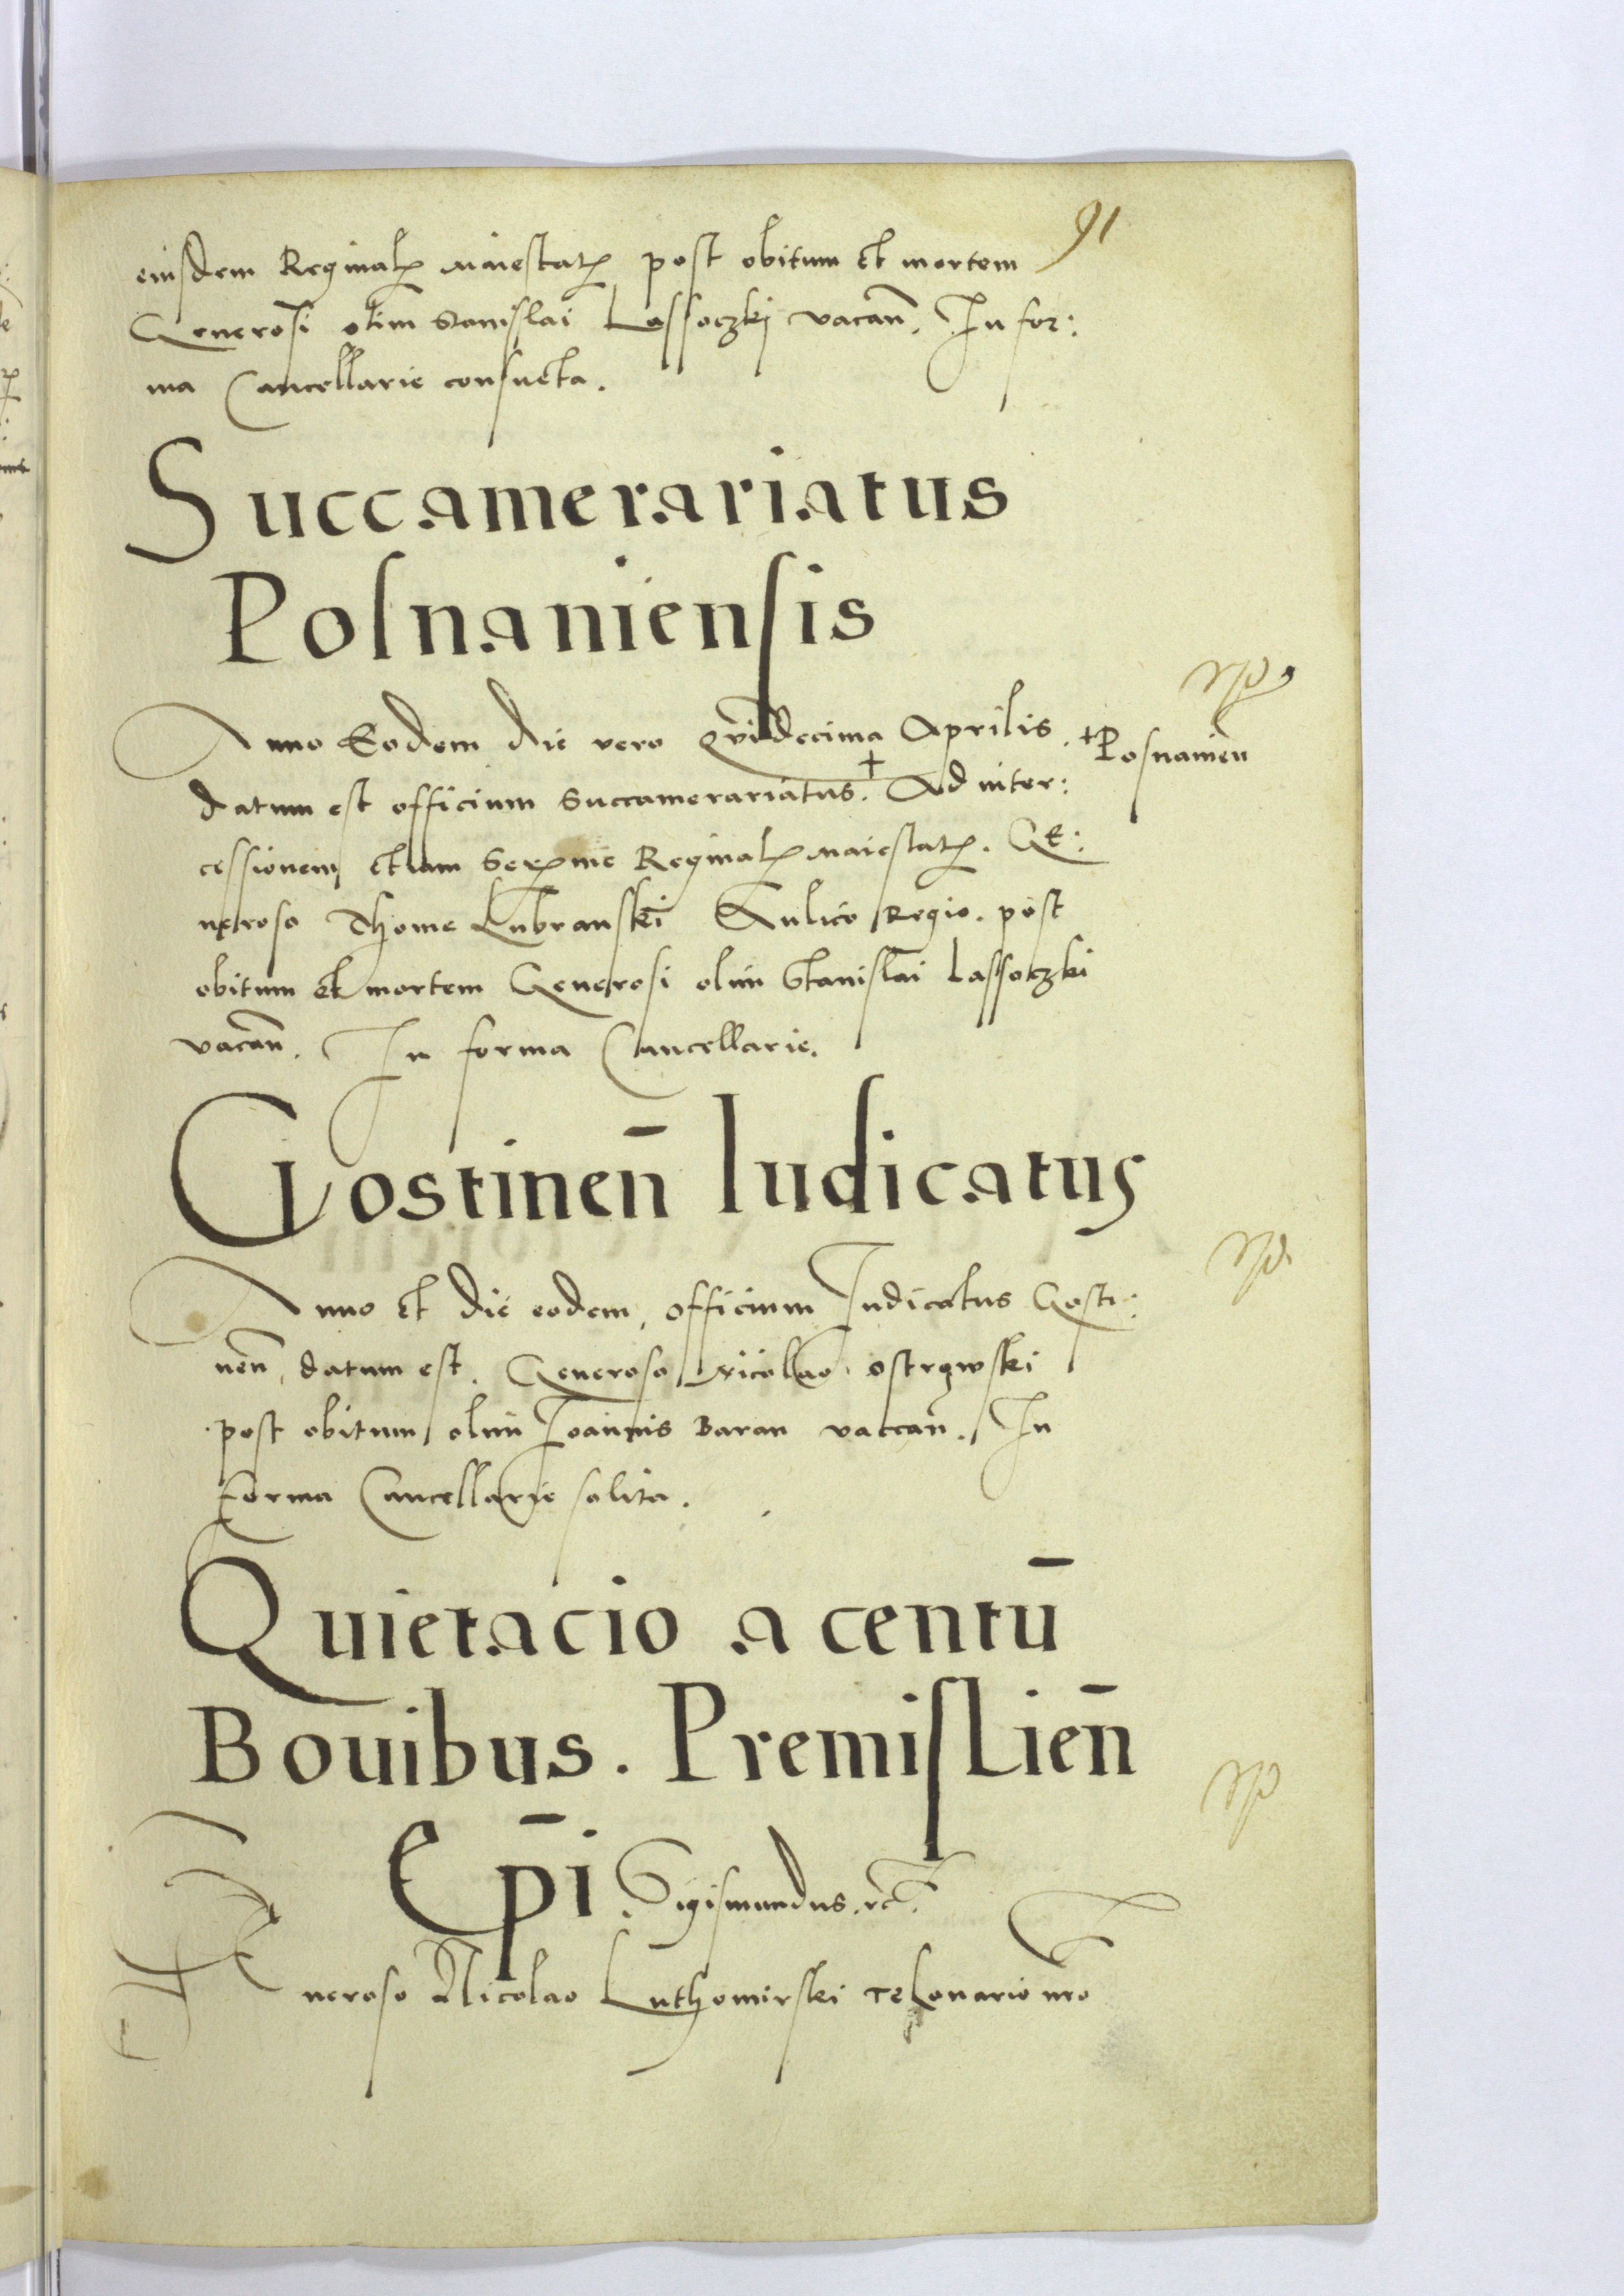 91
eiusdem Reginalis Maiestatis post obitum et mortem
Generosi olim Stanislai Lassoczkj vacan̄. In for:
ma Cancellarie consueta.
Succamerariatus
Posnaniensis
Anno Eodem die vero Qvindecima Aprilis.
datum est officium Succamerariatus. + Ad inter:
+Posnanien
cessionem etiam Serᵐᵉ Reginalis Maiestatis. GE:
neroso Thome Lubranski Aulico Regio. post
obitum et mortem Generosi olim Stanislai Lassoczki
vacan̄. In forma Cancellarie.
Gostinen̄ Iudicatus
Anno et die eodem, officium Iudicatus Gosti:
nen̄, datum est. Generoso Nicolao Ostrowski
post obitum olim Ioannis Baran vaccan̄. In
forma Cancellarie solita.
Quietacio a centū
Bouibus. Premislien̄
Ep̄i. Sigismundus. rc̄.
GE
neroso Nicolao Luthomirski Telonario nr̄o